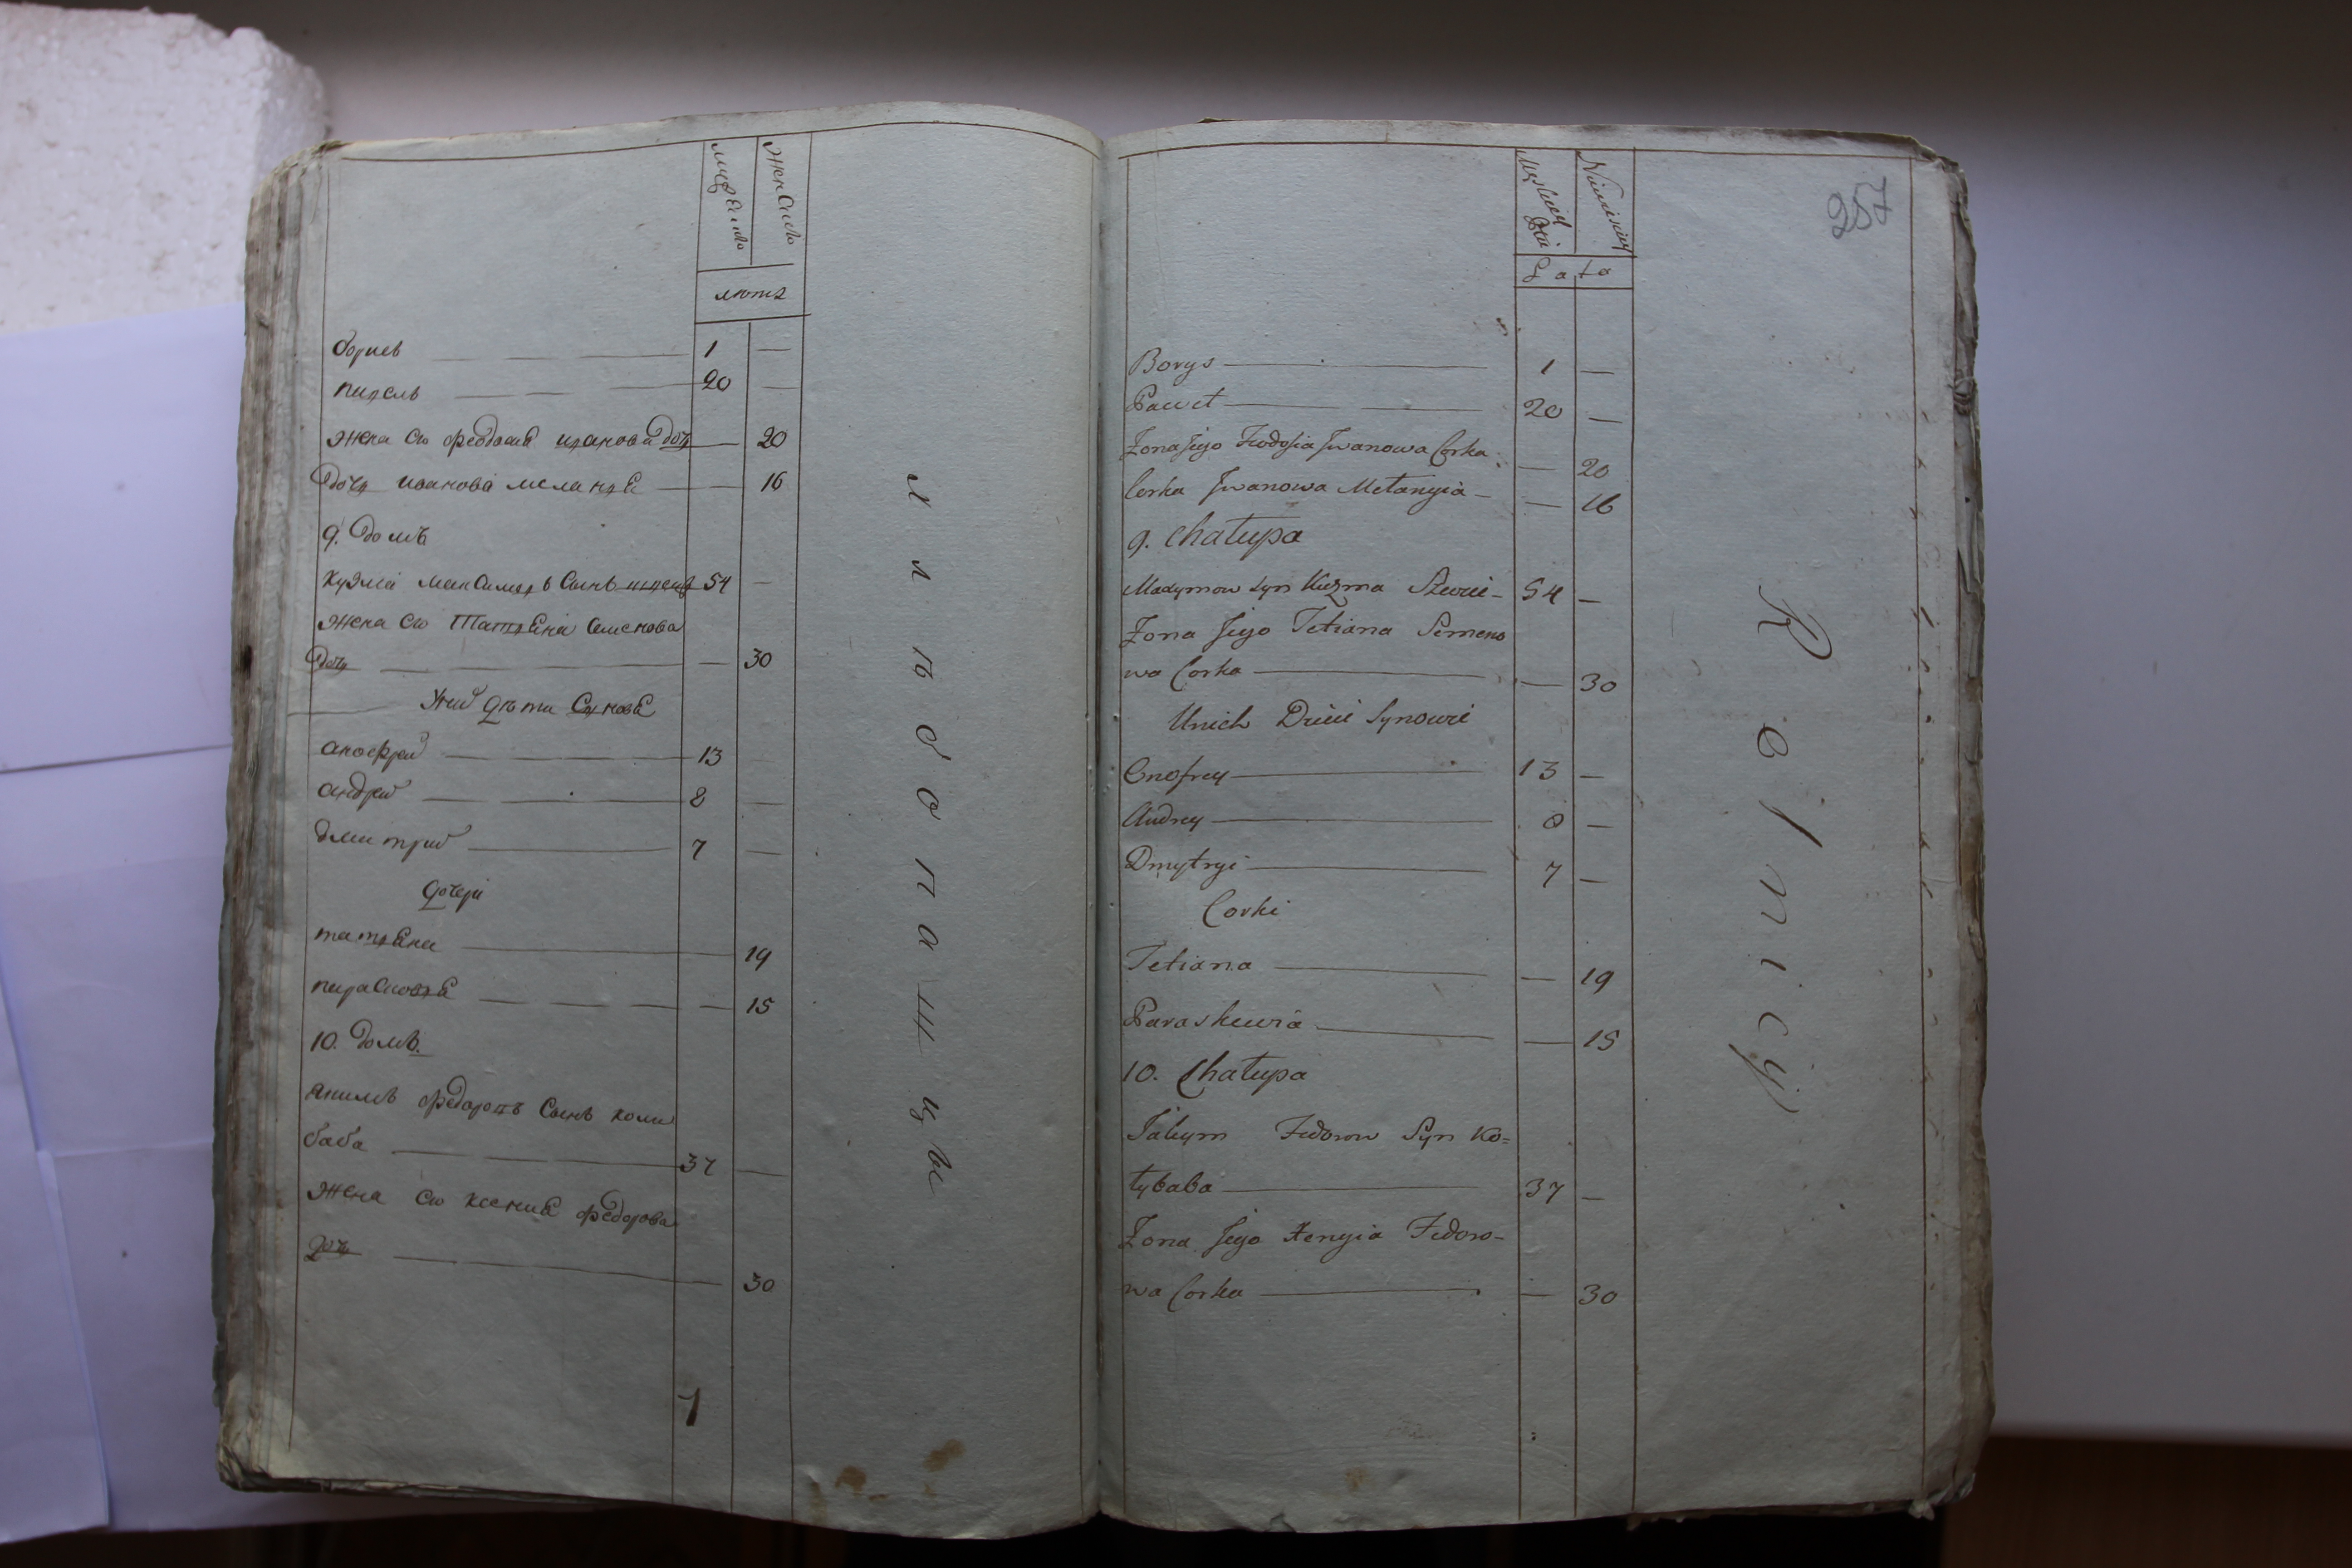 мужеска
женска
лѣтъ
борисъ 1 —
павелъ 20 —
жена єго феодосиа иванова дочь — 20
дочь иванова меланиа — 16
9. домъ
кузма максимовъ сынъ швецъ 54 —
жена єго татьяна семенова
дочь — 30
У них дѣти Сынове
анофрей 13
андрей 8 —
дмитрий 7 —
дочери
татьяна — 19
парасковиа — 15
10. домъ.
якимъ федоровъ сынъ коли
баба 37 —
жена єго ксениа федорова
дочь — 30
7
хлѣбопашцы
257
Męskiey
Płci
Niewieściey
Lata
Borys 1 —
Paweł 20 —
Żona Jego Fedosia Jwanowa Corka — 20
Corka Jwanowa Mełanyia — 16
9. Chałupa
Maxymow syn Kuzma Szewc 54 —
Żona Jego Tetiana Semeno
wa Corka — 30
Unich Dzieci Synowie
Onofrey 13 —
Andrey 8 —
Dmytryi 7 —
Corki
Tetiana — 19
Paraskewia — 15
10. Chałupa
Jakym Fedorow Syn Ko=
łybaba 37 —
Żona Jego Xenyia Fedoro-
wa Corka — 30
Rolnicy